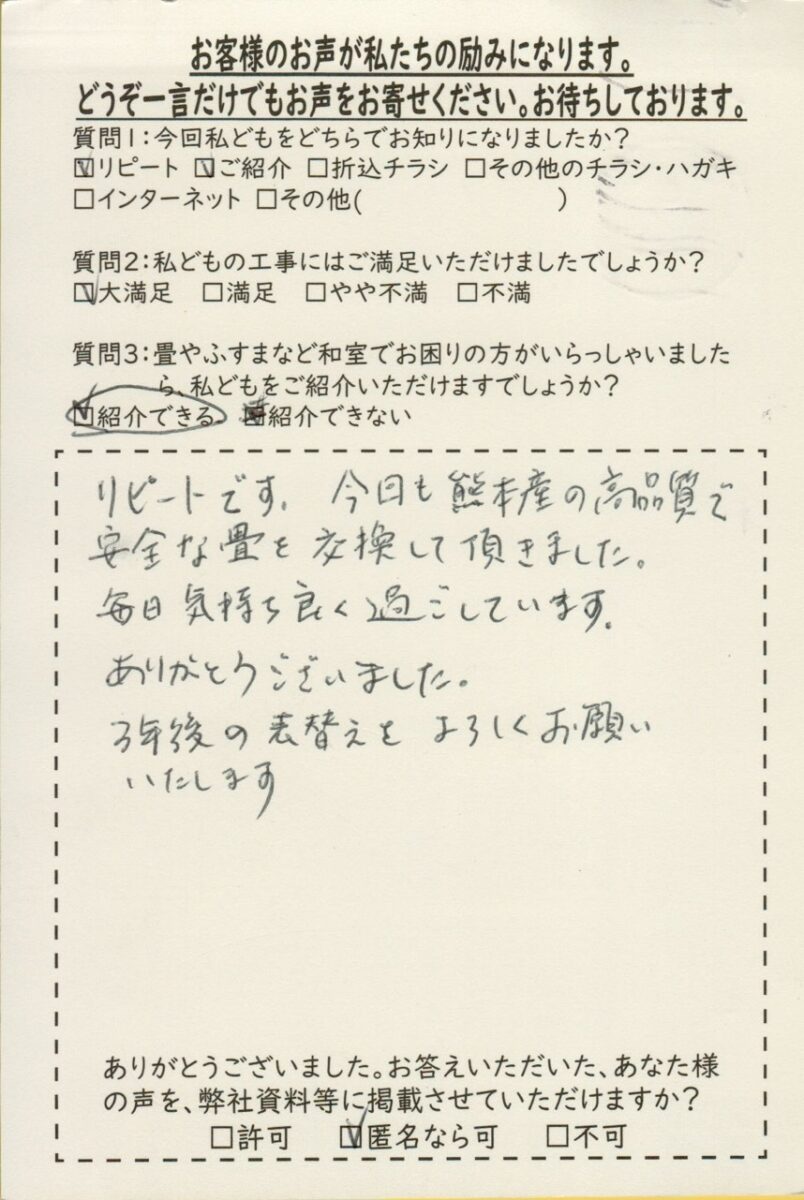 お客様のお声が私たちの励みになります。
どうぞ一言だけでもお声をお寄せください。お待ちしております。
質問1：今回私どもをどちらでお知りになりましたか？
☑リピート ☑ご紹介 □折込チラシ □その他のチラシ・ハガキ
□インターネット □その他(　　　　　　　　)
質問2：私どもの工事にはご満足いただけましたでしょうか？
☑大満足 □満足 □やや不満 □不満
質問3：畳やふすまなど和室でお困りの方がいらっしゃいました
ら、私どもをご紹介いただけますでしょうか？
☑紹介できる ■紹介できない
リピートです。今回も熊本産の高品質で
安全な畳を交換して頂きました。
毎日気持ち良く過ごしています。
ありがとうございました。
3年後の表替えをよろしくお願い
いたします
ありがとうございました。お答えいただいた、あなた様
の声を、弊社資料等に掲載させていただけますか？
□許可 ☑匿名なら可 □不可